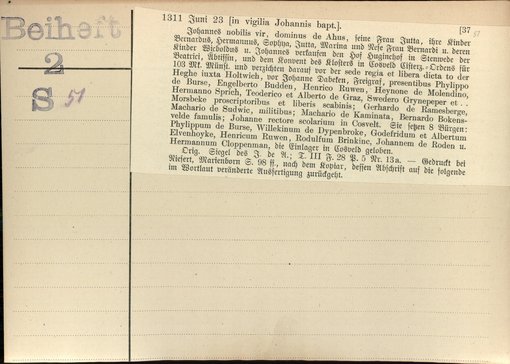 Beiheft
2
S 51
1311 Juni 23 [in vigilia Johannis bapt.]. [37
Johannes nobilis vir, dominus de Ahus, seine Frau Jutta, ihre Kinder
Bernardus, Hermannus, Sophya, Jutta, Marina und Nese Frau Bernardi u. deren
Kinder Wicboldus u. Johannes verkaufen den Hof Huginchof in Stenwede der
Beatrici, Äbtissin, und dem Convent des Klosters in Cosveld Cisterz.-Ordens für
103 Mk. Münst. und verzichten darauf vor der sede regia et libera dicta to der
Heghe iuxta Holtwich, vor Johanne Dabeken, Freigraf, presentibus Phylippo
de Burse, Engelberto Budden, Henrico Ruwen, Heynone de Molendino,
Hermanno Sprich, Teoderico et Alberto de Graz, Swedero Grynepeper et . .
Morsbeke proscriptoribus et liberis scabinis; Gerhardo de Ramesberge,
Machario de Sudwic, militibus; Machario de Kaminata, Bernardo Bokens-
velde famulis; Johanne rectore scolarium in Cosvelt. Sie setzen 8 Bürgen:
Phylippum de Burse, Willekinum de Dypenbroke, Godefridum et Albertum
Elvenhoyke, Henricum Ruwen, Rodulfum Brinike, Johannem de Roden u.
Hermannum Cloppenman, die Einlager in Cosveld geloben.
Orig. Siegel des J. de A.; T. III F. 28 P. 5 Nr. 13a. — Gedruckt bei
Niesert, Marienborn S. 98 ff., nach dem Kopiar, dessen Abschrift auf die folgende
im Wortlaut veränderte Ausfertigung zurückgeht.